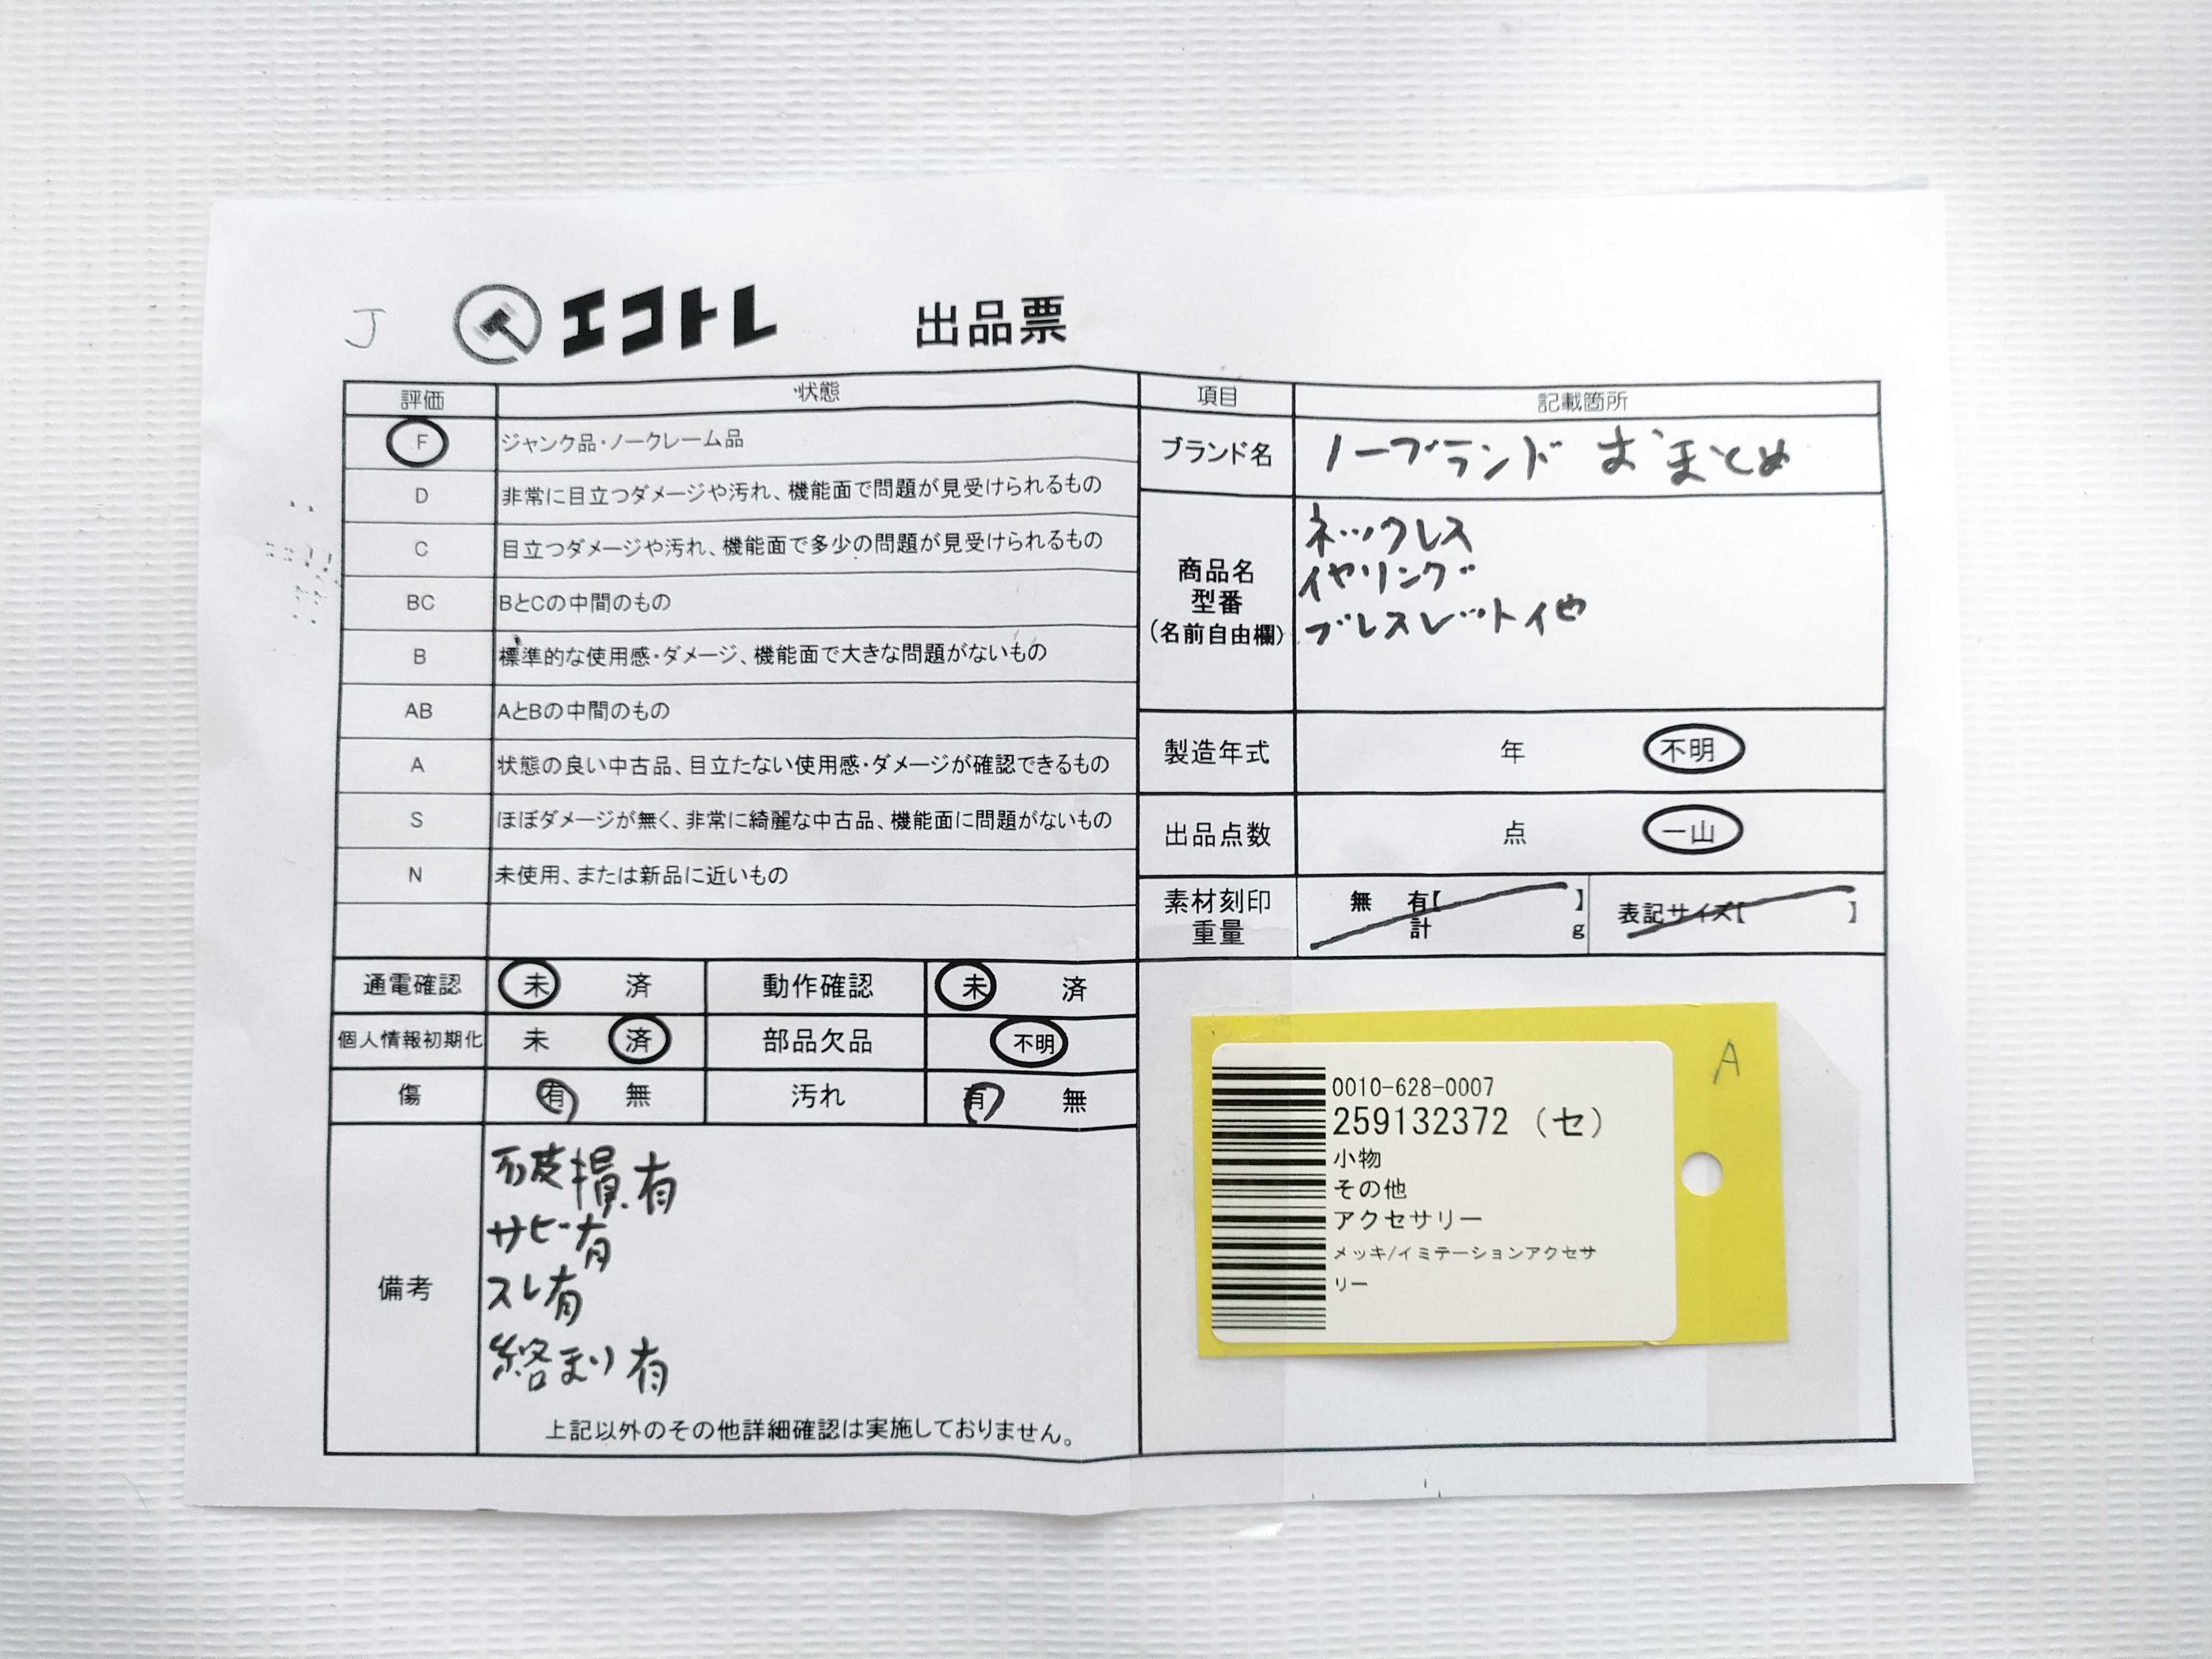 J エコトレ 出品票
評価 状態 項目 記載箇所
F ジャンク品・ノークレーム品
D 非常に目立つダメージや汚れ、機能面で問題が見受けられるもの
C 目立つダメージや汚れ、機能面で多少の問題が見受けられるもの
BC BとCの中間のもの
B 標準的な使用感・ダメージ、機能面で大きな問題がないもの
AB AとBの中間のもの
A 状態の良い中古品、目立たない使用感・ダメージが確認できるもの
S ほぼダメージが無く、非常に綺麗な中古品、機能面に問題がないもの
N 未使用、または新品に近いもの
ブランド名 ノーブランド おまとめ
商品名
型番
(名前自由欄)
ネックレス
イヤリング
ブレスレット他
製造年式 年 不明
出品点数 点 一山
素材刻印
重量
無 有【 】
計 g
表記サイズ【 】
通電確認 未 済 動作確認 未 済
個人情報初期化 未 済 部品欠品 不明
傷 有 無 汚れ 有 無
備考
破損有
サビ有
スレ有
絡まり有
上記以外のその他詳細確認は実施しておりません。
A
0010-628-0007
259132372 (セ)
小物
その他
アクセサリー
メッキ/イミテーションアクセサ
リー